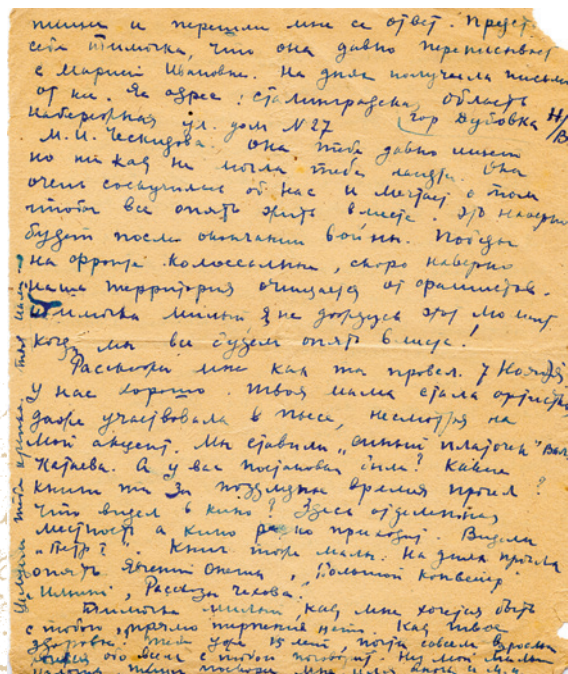 пиши и перешли мне ее ответ. Предст
себе Тимочка, что она давно переписывает
с Марией Ивановне. На днях получила письмо
от ни. Ее адрес: Сталинградская область
гор Дубовка Н/В
Набережная ул. дом N 27
М. И. Ческидова. Она тебя давно
но ни как не могла тебя найти. Она
очень соскучилась об нас и мечтает о том
чтобы все опять жить вместе. Это наверно
будет после окончании войны. Победы
на фронте колоссальны, скоро наверно
наша территория очищается от фашистов.
Тимочка милый я не дождусь этот момент
когда мы все будем опять вместе!
Расскажи мне как ты провел 7 Ноября,
у нас хорошо. Твоя мама стала артистка
даже участвовала в пьесе, несмотря на
мой акцент. Мы ставили „Синий платочек" Вал.
Катаева. А у вас постановка была? Какие
книги ты за последнее время прочел?
Что видел в кино? Здесь отдаленная
местность а кино редко приходит. Видели
„Петр I". Книг тоже мало. На днях прочла
опять Евгений Онегин, „Большой Конвейер
Ильина, Рассказы Чехова.
Тимочка милый как мне хочется быть
с тобою, прямо терпения нет. Как твое
здоровье, тебе уже 15 лет, почти совсем взрослый
обо всем с тобой поговорит. Ну мой милый
пиши поскорей мне
Целую тебя крепко. твоя мама